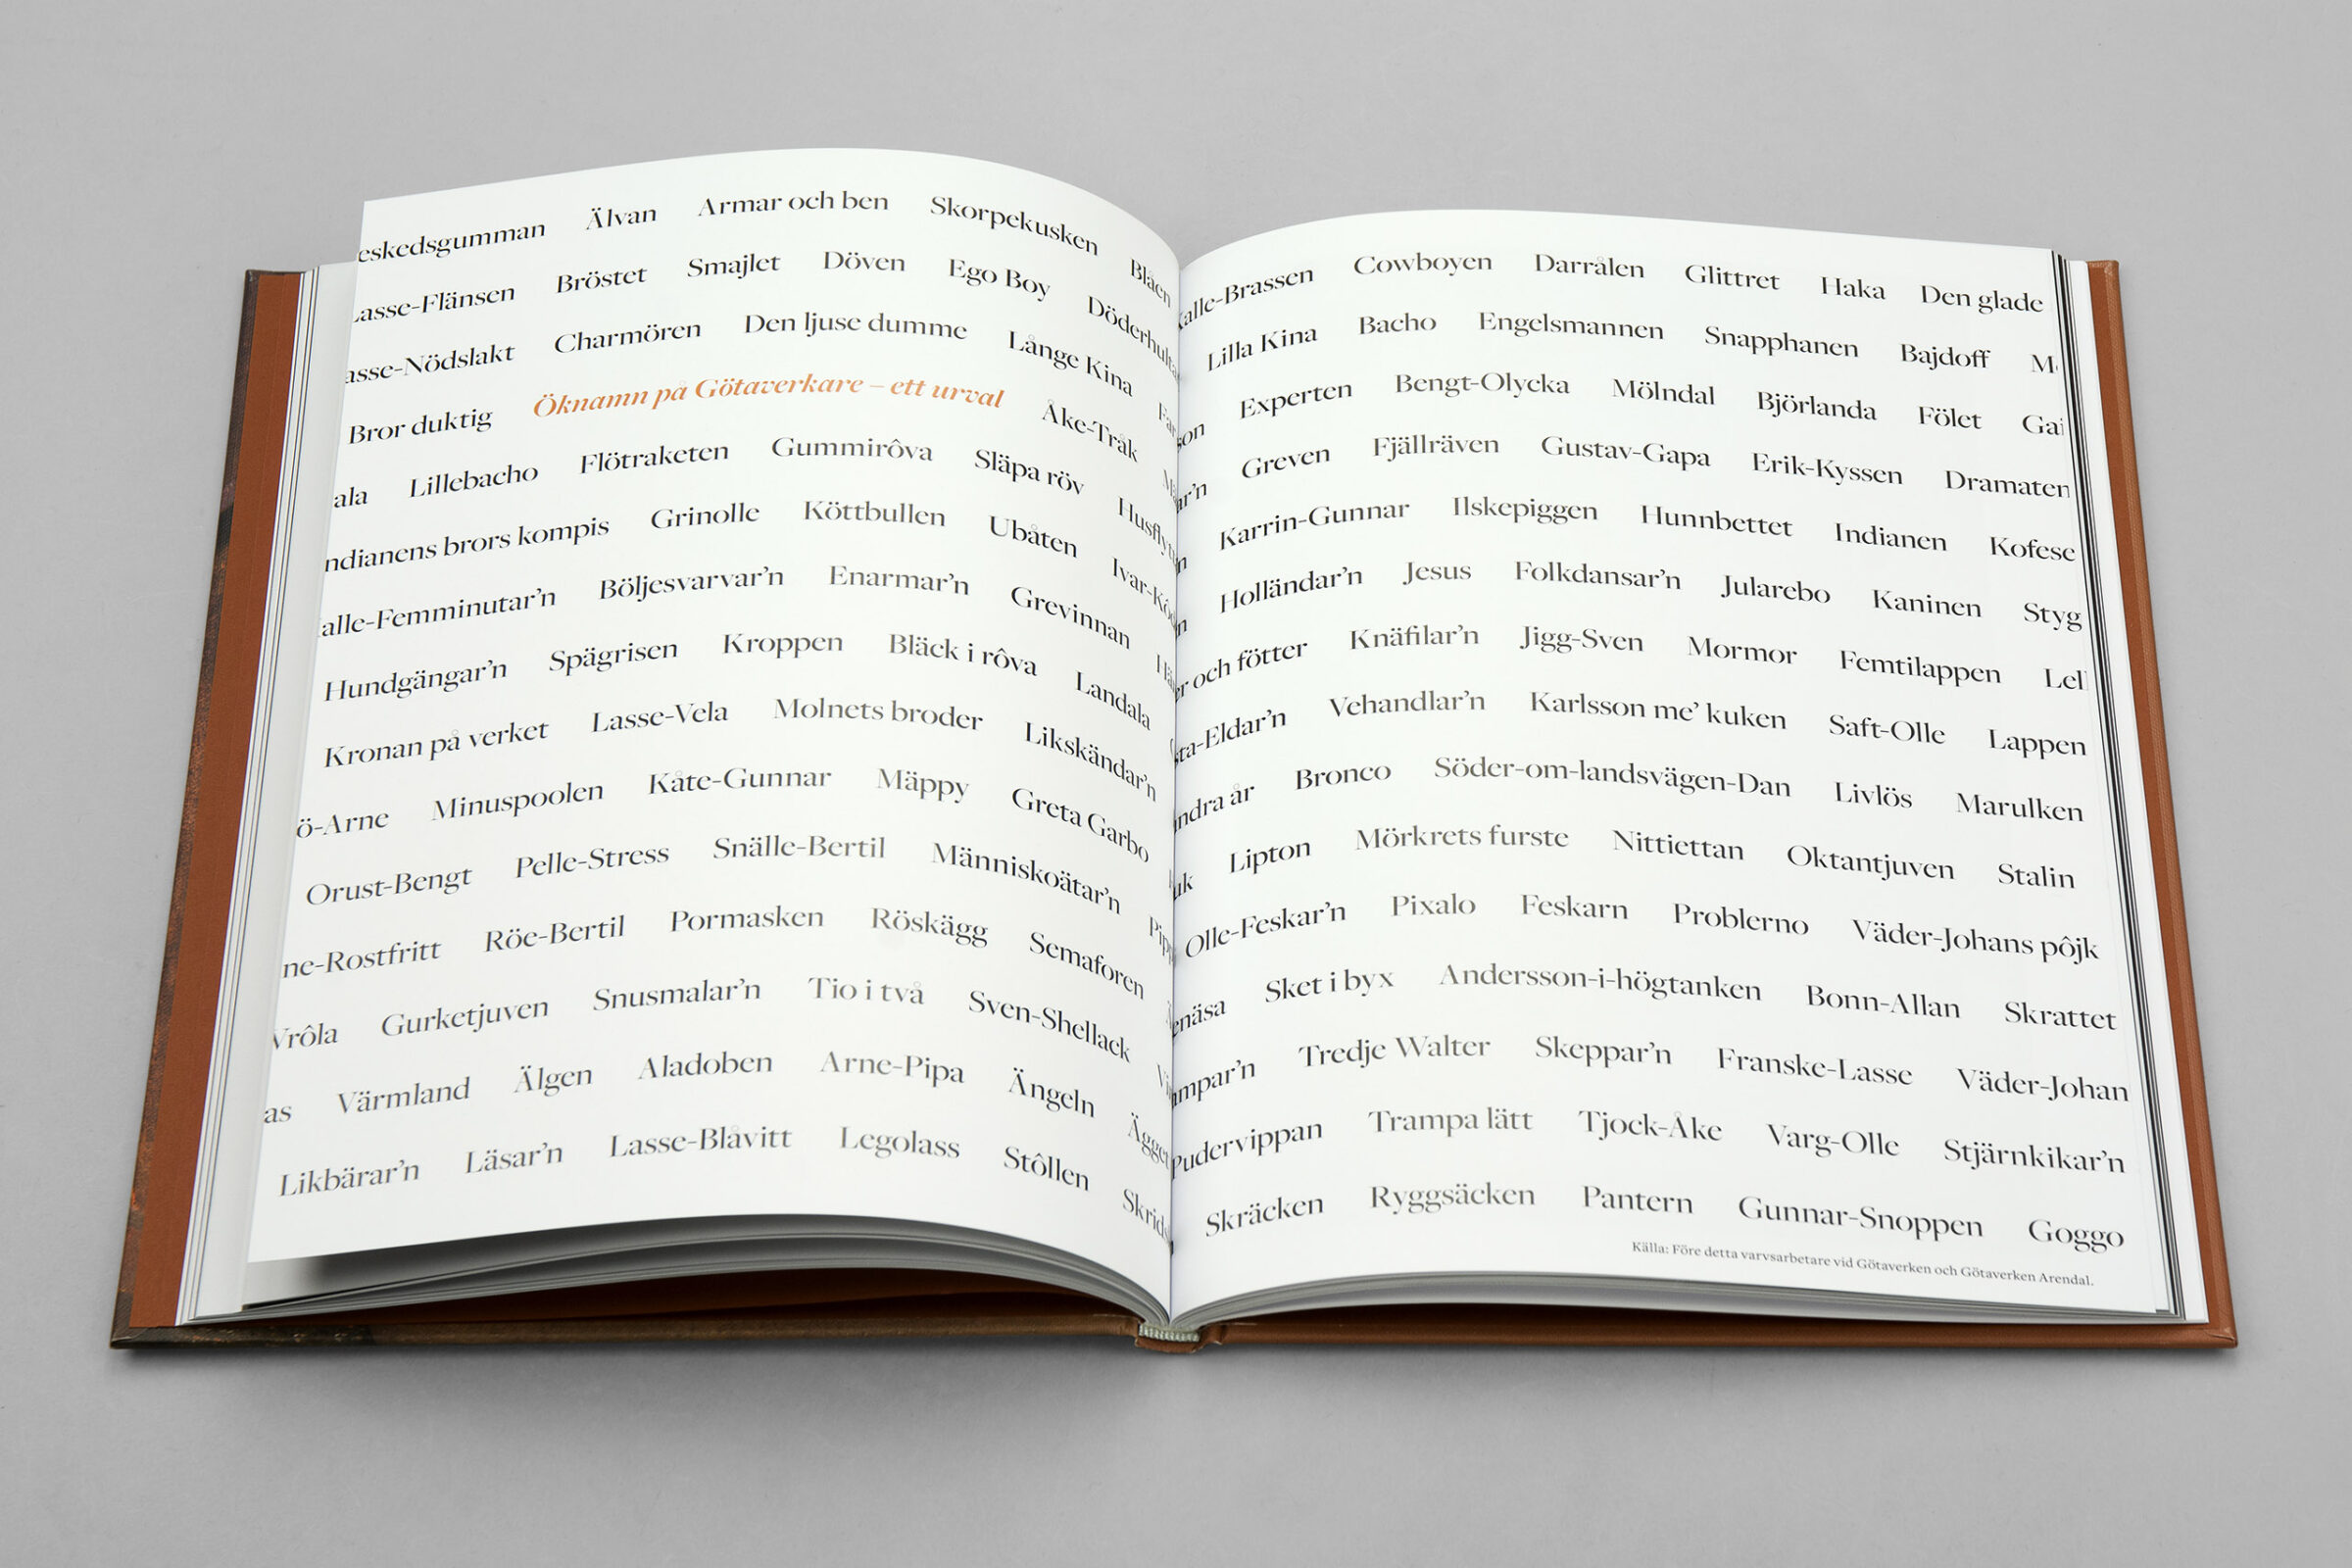 eskedsgumman Älvan Armar och ben Skorpekusken Blåen
asse-Flänsen Bröstet Smajlet Döven Ego Boy Döderhulta
asse-Nödslakt Charmören Den ljuse dumme Långe Kina Far
Bror duktig Öknamn på Götaverkare – ett urval Åke-Tråk
ala Lillebacho Flötraketen Gummirôva Släpa röv Husfly
ndianens brors kompis Grinolle Köttbullen Ubåten Ivar-Kö
alle-Femminutar’n Böljesvarvar’n Enarmar’n Grevinnan
Hundgängar’n Spägrisen Kroppen Bläck i rôva Landala
Kronan på verket Lasse-Vela Molnets broder Likskändar’n
ö-Arne Minuspoolen Kåte-Gunnar Mäppy Greta Garbo
Orust-Bengt Pelle-Stress Snälle-Bertil Människoätar’n Pip
ne-Rostfritt Röe-Bertil Pormasken Röskägg Semaforen
Vrôla Gurketjuven Snusmalar’n Tio i två Sven-Shellack
as Värmland Älgen Aladoben Arne-Pipa Ängeln Ägget
Likbärar’n Läsar’n Lasse-Blåvitt Legolass Stôllen Skrid
alle-Brassen Cowboyen Darrålen Glittret Haka Den glade
Lilla Kina Bacho Engelsmannen Snapphanen Bajdoff M
son Experten Bengt-Olycka Mölndal Björlanda Fölet Gai
ar’n Greven Fjällräven Gustav-Gapa Erik-Kyssen Dramaten
n Karrin-Gunnar Ilskepiggen Hunnbettet Indianen Kofese
n Holländar’n Jesus Folkdansar’n Jularebo Kaninen Styg
er och fötter Knäfilar’n Jigg-Sven Mormor Femtilappen Lel
sta-Eldar’n Vehandlar’n Karlsson me’ kuken Saft-Olle Lappen
ndra år Bronco Söder-om-landsvägen-Dan Livlös Marulken
uk Lipton Mörkrets furste Nittiettan Oktantjuven Stalin
Olle-Feskar’n Pixalo Feskarn Problerno Väder-Johans pôjk
enäsa Sket i byx Andersson-i-högtanken Bonn-Allan Skrattet
mpar’n Tredje Walter Skeppar’n Franske-Lasse Väder-Johan
Pudervippan Trampa lätt Tjock-Åke Varg-Olle Stjärnkikar’n
Skräcken Ryggsäcken Pantern Gunnar-Snoppen Goggo
Källa: Före detta varvsarbetare vid Götaverken och Götaverken Arendal.